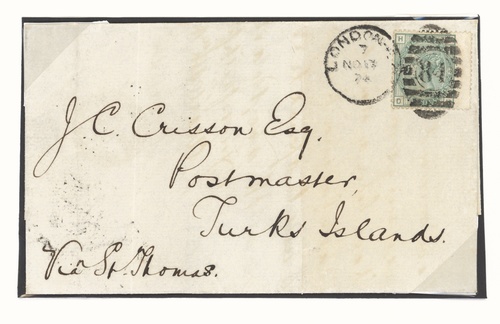 LONDON
7
NO 13
74
H
84
D
J. C. Crisson Esq.
Postmaster,
Turks Islands.
Via St. Thomas.